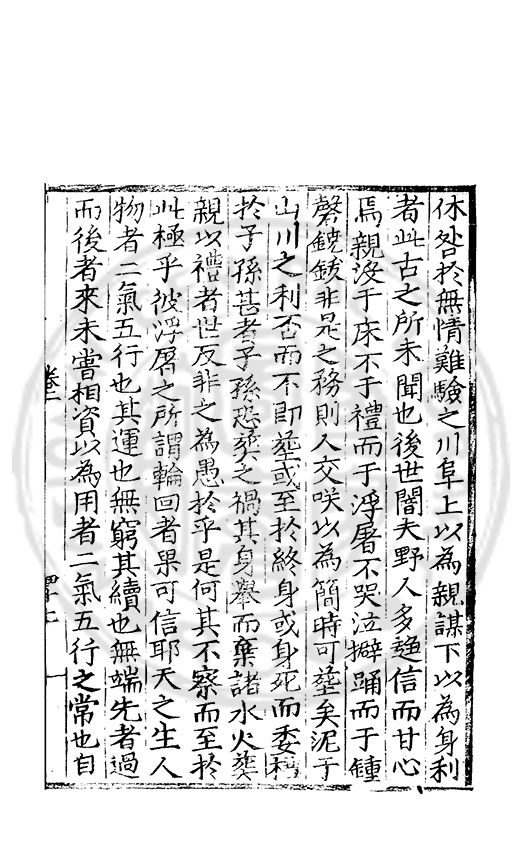 休咎於無情難驗之川阜上以為親謀下以為身利
者此古之所未聞也後世闇夫野人多趨信而甘心
焉親沒于床不于禮而于浮屠不哭泣擗踊而于鍾
磬鐃鈸非是之務則人交咲以為簡時可塟矣泥于
山川之利否而不即塟或至於終身或身死而委
於子孫甚者子孫恐塟之禍其身舉而棄諸水火塟
親以禮者世反非之為愚於乎是何其不察而至於
此極乎彼浮屠之所謂輪回者果可信耶天之生人
物者二氣五行也其運也無窮其續也無端先者過
而後者來未甞相資以為用者二氣五行之常也自
卷二